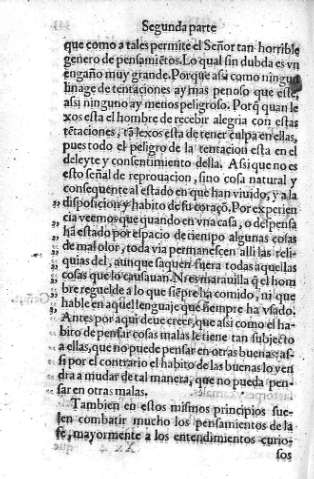 Segunda parte
que como a tales permite el Señor tan horrible
genero de pensamiētos. Lo qual sin dubda es vn
engaño muy grande. Porque assi como ningu
linage de tentaciones ay mas penoso que este,
assi ninguno ay menos peligroso. Porq̃ quan le
xos esta el hombre de recebir alegria con estas
tētaciones, tā lexos esta de tener culpa en ellas,
pues todo el peligro de la tentacion esta en el
deleyte y consentimiento della. Assi que no es
esto señal de reprouacion, sino cosa natural y
consequente al estado en que han viuido, y a la
disposicion y habito de su coraçō. Por experien
cia veemos que quando en vna casa, o despensa
ha estado por espacio de tiempo algunas cosas
de mal olor, toda via permanescen alli las reli-
quias del, aunque saquen fuera todas aquellas
cosas que lo causauan. N̄ res marauilla q̄ el hom
bre reguelde a lo que siēpre ha comido, ni que
hable en aquel lenguaje que siempre ha vsado.
Antes por aqui deue creer, que assi como el ha-
bito de pensar cosas malas le tiene tan subjecto
a ellas, que no puede pensar en otras buenas: as-
si por el contrario el habito de las buenas lo ven
dra a mudar de tal manera, que no pueda pen-
sar en otras malas.
Tambien en estos mismos principios sue-
len combatir mucho los pensamientos de la
fe, mayormente a los entendimientos curio-
sos